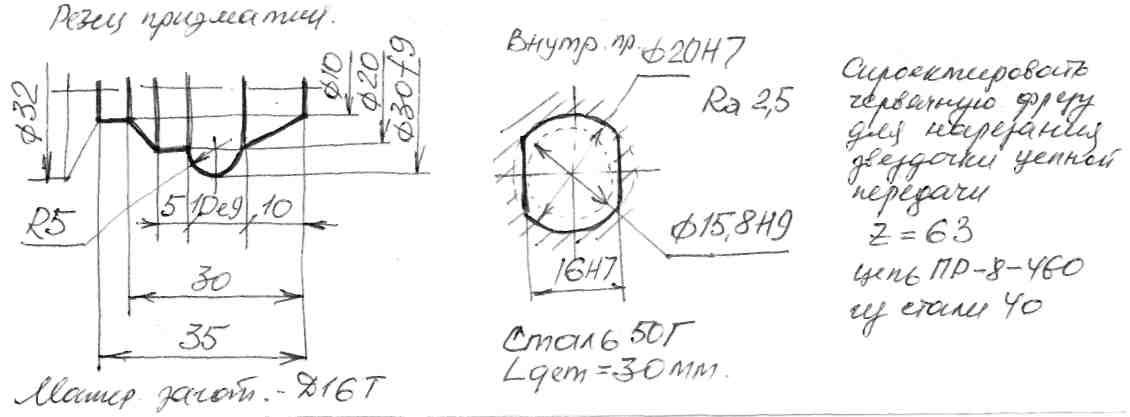 Резец призматич.
ф32
ф10
ф20
ф30f9
R5
5
10e9
10
30
35
Матер. загот. - Д16Т
Внутр. пр.
ф20H7
Ra 2,5
ф15,8H9
16H7
Сталь 50Г
Lдет = 30 мм.
Спроектировать
червячную фрезу
для нарезания
звездочки цепной
передачи
Z = 63
цепь ПР-8-460
из стали 40